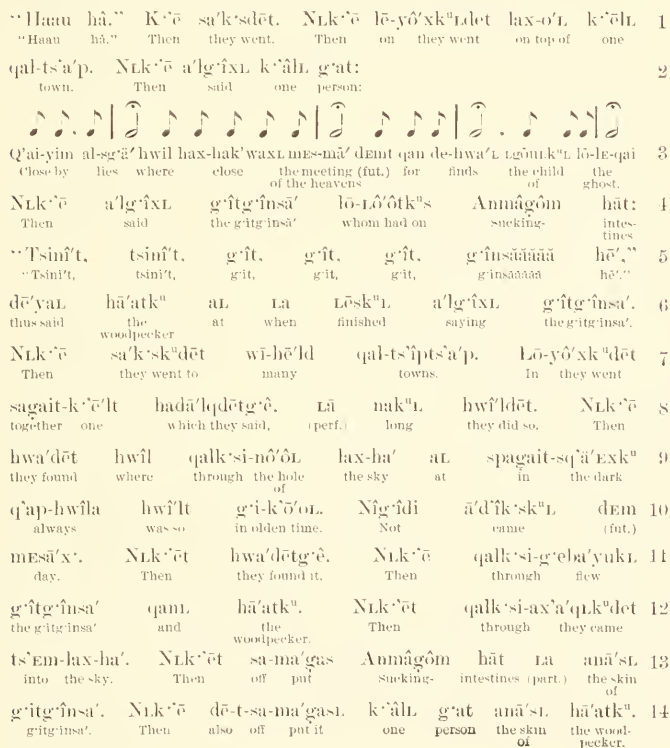 "Haau hâ." K·'ē sa'k·sdēt. NLk·'ē lē-yô'xkᵘLdet lax-o'L k·'ēlL 1
"Haau hâ." Then they went. Then on they went on top of one
qal-ts'a'p. NLk·'ē a'lg·îxL k·'âlL g·at: 2
town. Then said one person:
Q'ai-yim al-sg·ā' hwil hax-hak'waxL mEs-mā' dEmt qan de-hwa'L Lgōulkᵘʟ lō-lE-qai 3
Close by lies where close the meeting (fut.) for finds the child the
of the heavens of ghost.
NLk·'ē a'lg·îxL g·îtg·însā' lō-Lô'ôtkᵘs Anmâgôm hāt: 4
Then said the g·itg·insā' whom had on Sucking- intes-
tines
"Tsinî't, tsinî't, g·ît, g·ît, g·ît, g·însăăăăă hē'," 5
"Tsini't, tsini't, g·it, g·it, g·it, g·insăăăăă hē'."
dē'yaL hā'atkᵘ aL La Lēskᵘʟ a'lg·îxL g·îtg·însa'. 6
thus said the at when finished saying the g·itg·insa'.
woodpecker
NLk·'ē sa'k·skᵘdēt wī-hē'ld qal-ts'îpts'a'p. Lō-yô'xkᵘdēt 7
Then they went to many towns. In they went
sagait-k·'ē'lt hadā'lqdētg·ê. Lā nakᵘʟ hwî'ldēt. NLk·'ē 8
together one which they said, (perf.) long they did so. Then
hwa'dēt hwîl qalk·si-nô'ôL lax-ha' aL spagait-sq'ā'Exkᵘ 9
they found where through the hole the sky at in the dark
of
q'ap-hwîla hwî'lt g·i-k·'ō'oL. Nîg·îdi ā'd'îk·skᵘʟ dEm 10
always was so in olden time. Not came (fut.)
mEsā'x·. NLk·'ēt hwa'dētg·ê. NLk·'ē qalk·si-g·eba'yukL 11
day. Then they found it. Then through flew
g·îtg·însa' qanL hā'atkᵘ. NLk·'ēt qalk·si-ax'a'qLkᵘdet 12
the g·itg·insa' and the Then through they came
woodpecker.
ts'Em-lax-ha'. NLk·'ēt sa-ma'gas Anmâgôm hāt La anā'sL 13
into the sky. Then off put Sucking- intestines (part.) the skin
of
g·itg·însa'. NLk·'ē dē-t-sa-ma'gasL k·'âlL g·at anā'sL hā'atkᵘ. 14
g·itg·insa'. Then also off put it one person the skin the wood-
of pecker.